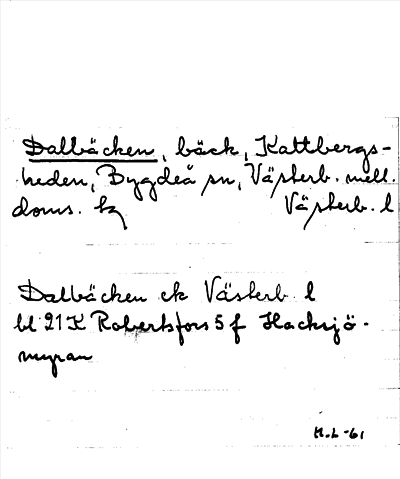 Dalbäcken, bäck, Kattbergs-
heden, Bygdeå sn, Västerb. mell.
doms. tg Västerb. l
Dalbäcken ek Västerb l
bl 21K Robertsfors 5 f Hacksjö-
myran
H.L -61